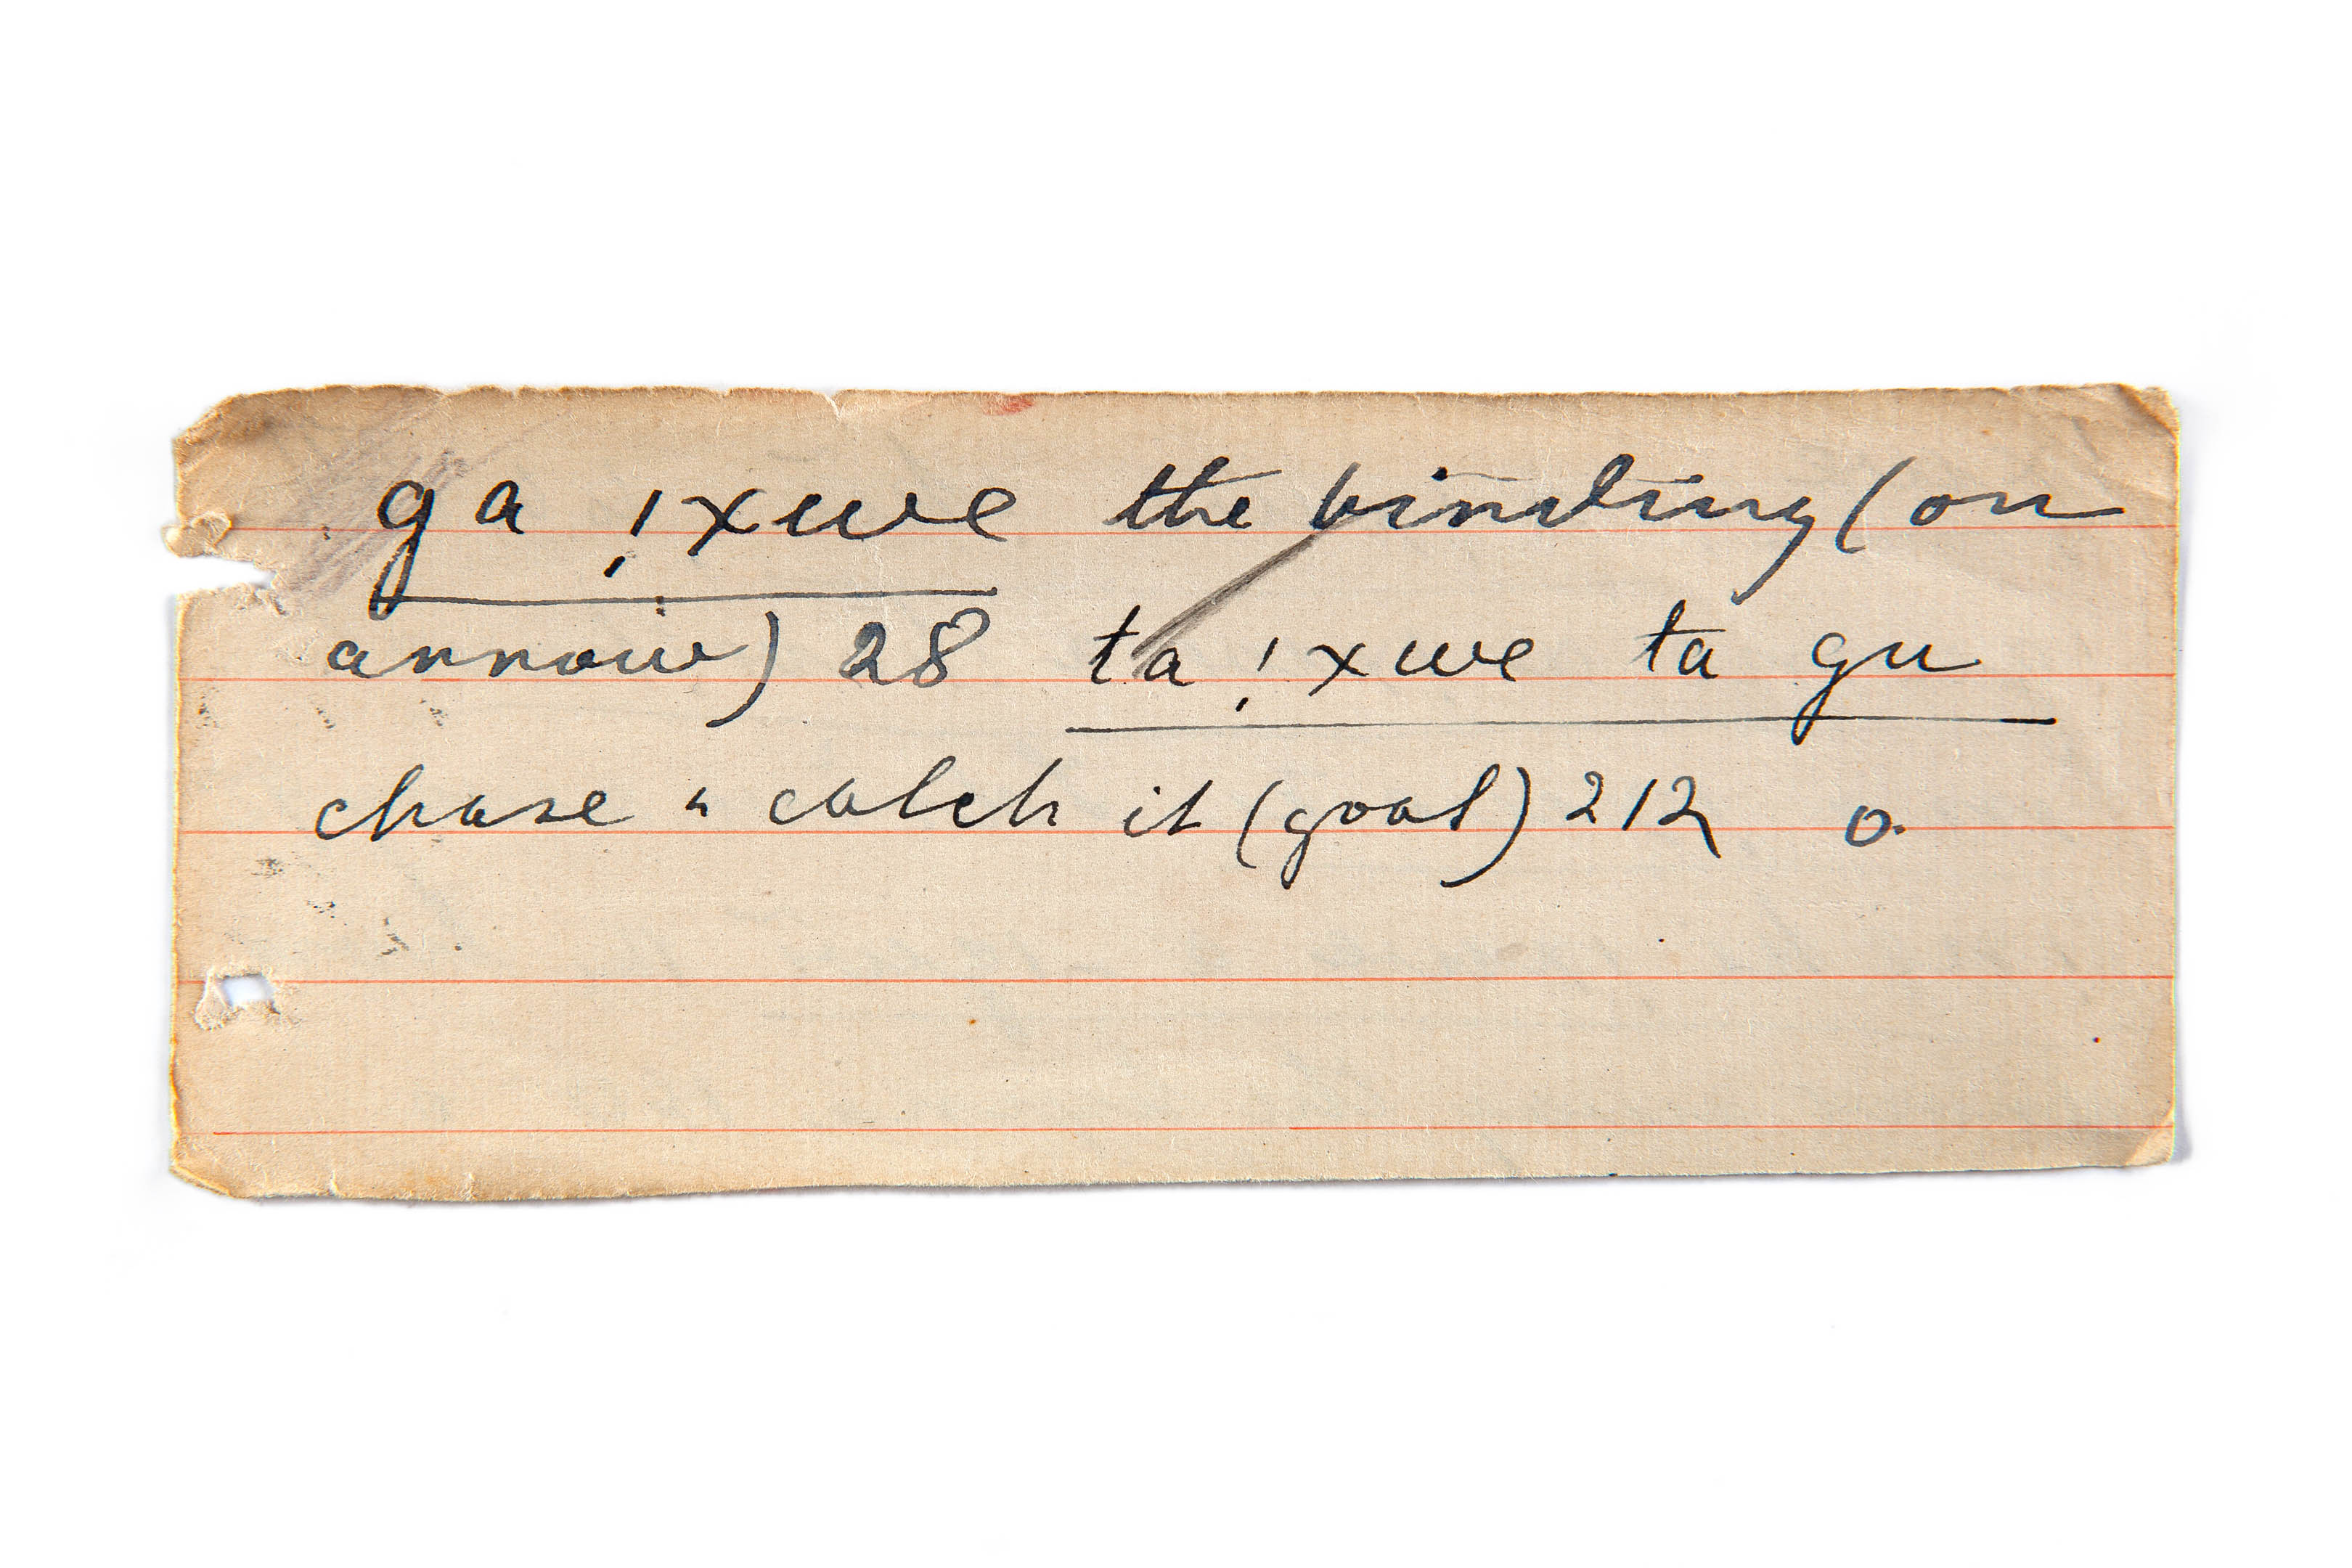 ga !xwe the binding (on
arrow) 28 ta !xwe ta gu
chase & catch it (goal) 212 o.